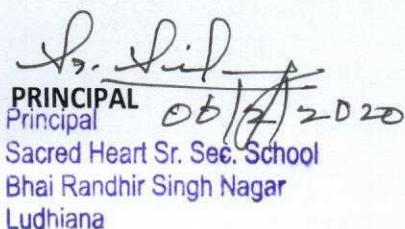 Sr.
PRINCIPAL
06/2/2020
Principal
Sacred Heart Sr. Sec. School
Bhai Randhir Singh Nagar
Ludhiana